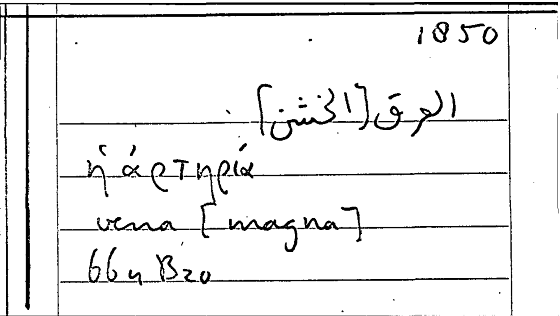 1850
العرق [الخشن]
ἡ ἀρτηρία
vena [magna]
66 n B20